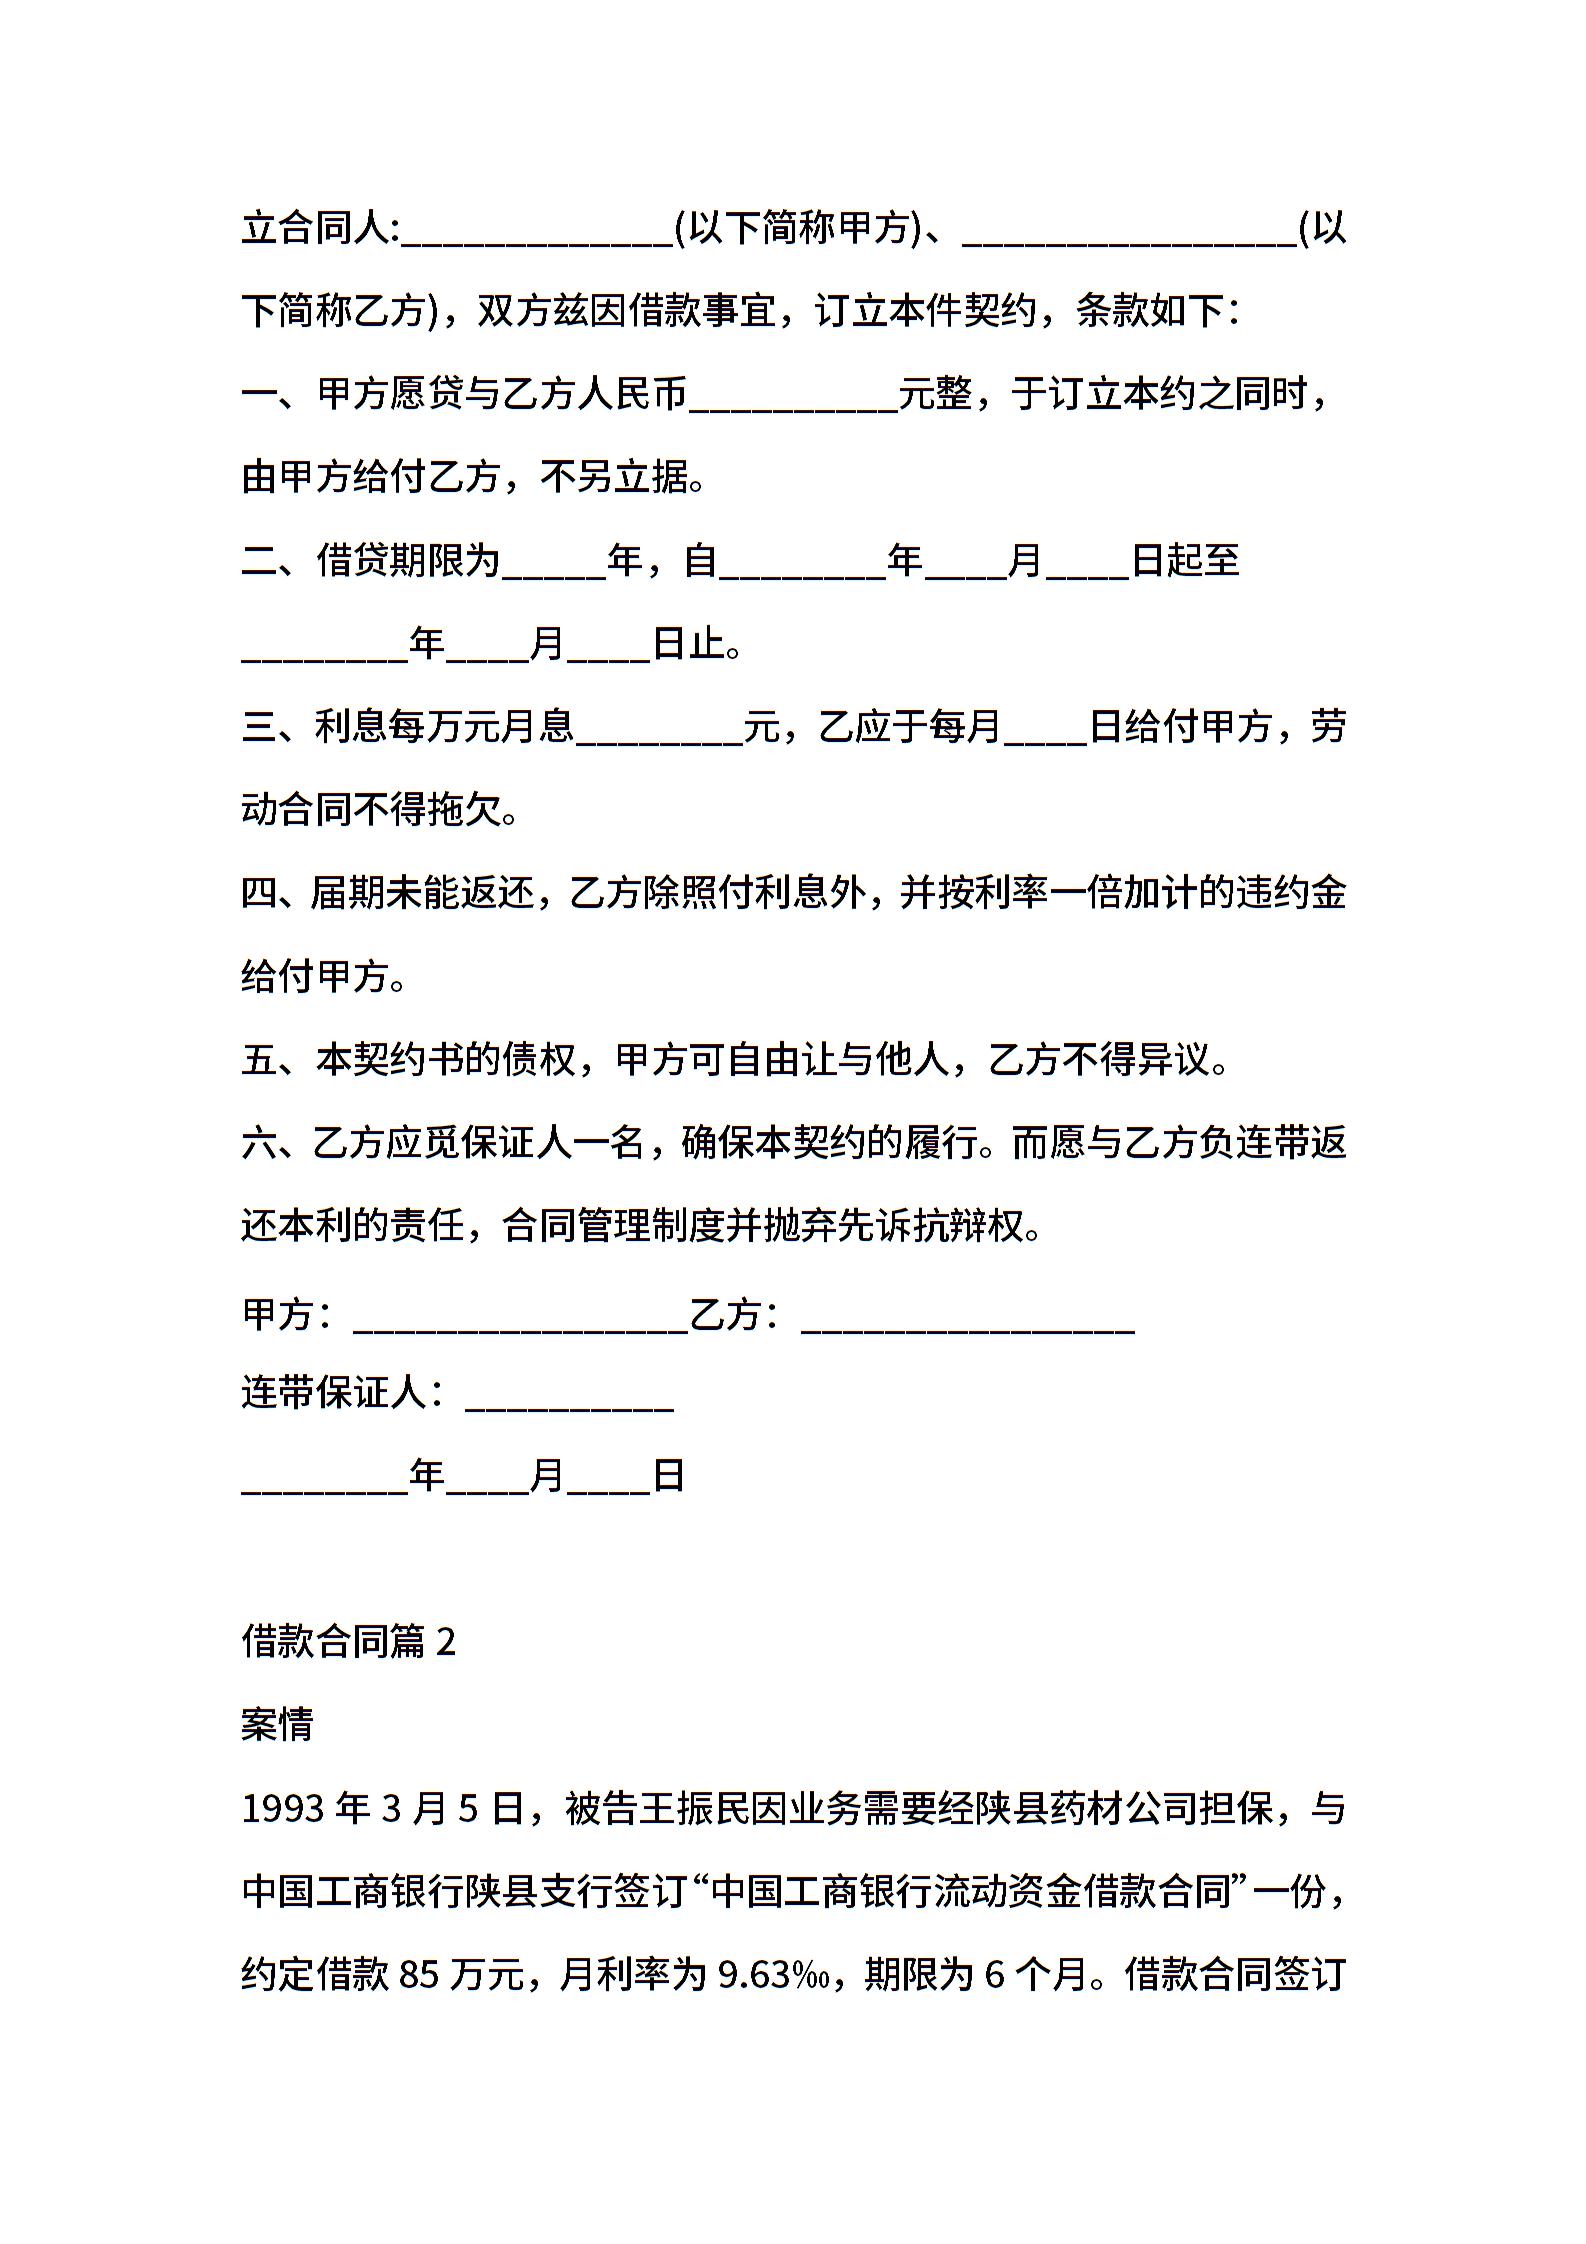 立合同人:_____________(以下简称甲方)、________________(以
下简称乙方)，双方兹因借款事宜，订立本件契约，条款如下：
一、甲方愿贷与乙方人民币__________元整，于订立本约之同时，
由甲方给付乙方，不另立据。
二、借贷期限为_____年，自________年____月____日起至
________年____月____日止。
三、利息每万元月息________元，乙应于每月____日给付甲方，劳
动合同不得拖欠。
四、届期未能返还，乙方除照付利息外，并按利率一倍加计的违约金
给付甲方。
五、本契约书的债权，甲方可自由让与他人，乙方不得异议。
六、乙方应觅保证人一名，确保本契约的履行。而愿与乙方负连带返
还本利的责任，合同管理制度并抛弃先诉抗辩权。
甲方：________________乙方：________________
连带保证人：__________
________年____月____日
借款合同篇 2
案情
1993 年 3 月 5 日，被告王振民因业务需要经陕县药材公司担保，与
中国工商银行陕县支行签订“中国工商银行流动资金借款合同”一份，
约定借款 85 万元，月利率为 9.63‰，期限为 6 个月。借款合同签订